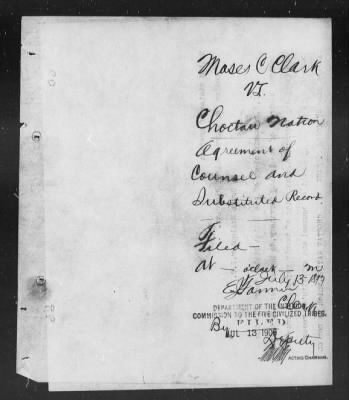 Moses C Clark
vs.
Choctaw Nation
Agreement of
Counsel and
Substituted Record
Filed —
At — o'clock — m
July 13
Clerk
DEPARTMENT OF THE INTERIOR,
COMMISSION TO THE FIVE CIVILIZED TRIBES.
FILED
By
JUL 13 190
Deputy
ACTING CHAIRMAN.